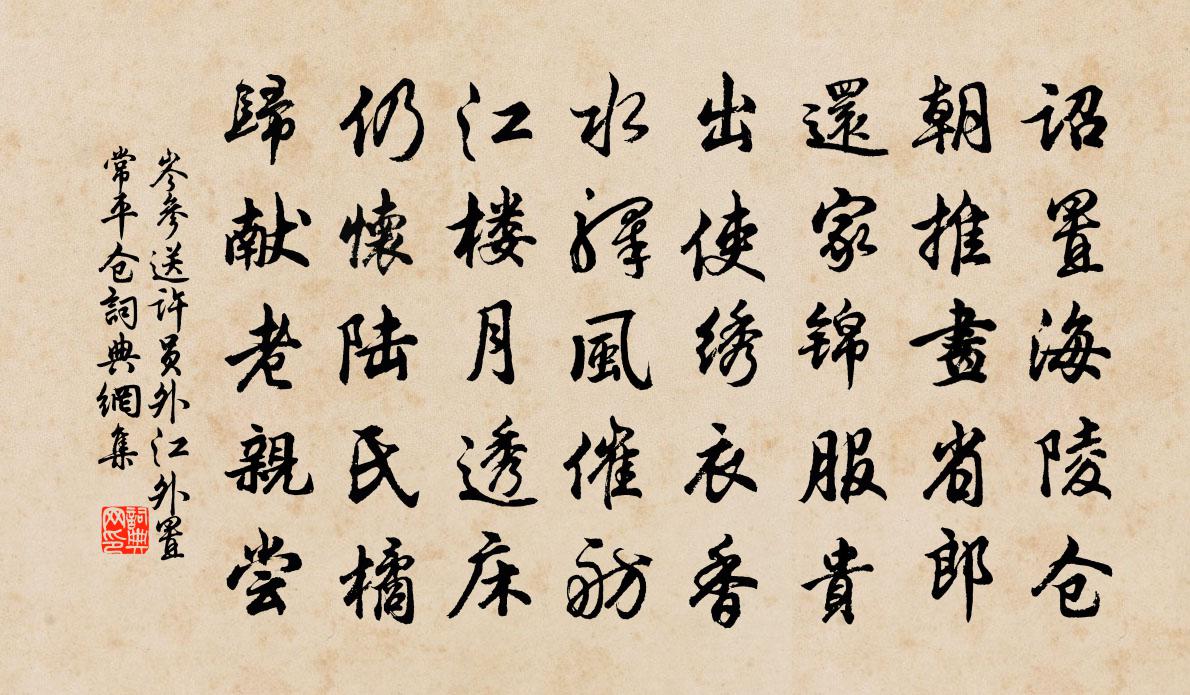 詔置海陵仓
朝推畫省郎
還家锦服貴
出使绣衣香
水驛風催舫
江楼月透床
仍懷陆氏橘
歸献老親尝
岑參送許員外江外置
常平仓詞典網集
詞典网印